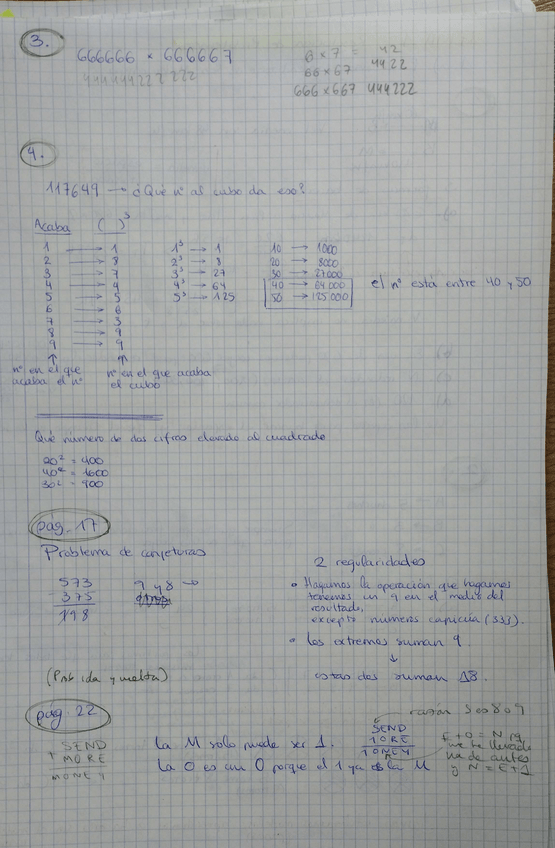 3.
666666 × 666667
444444222222
6 × 7 = 42
66 × 67 4422
666 × 667 444222
4.
117649 → ¿Qué nº al cubo da eso?
Acaba ( )³
1 → 1
2 → 8
3 → 7
4 → 4
5 → 5
6 → 6
7 → 3
8 → 9
9 → 9
nº en el que acaba el nº
nº en el que acaba el cubo
1³ → 1
2³ → 8
3³ → 27
4³ → 64
5³ → 125
10 → 1000
20 → 8000
30 → 27000
40 → 64.000
50 → 125.000
el nº está entre 40 y 50
Qué número de dos cifras elevado al cuadrado
20² = 400
40² = 1600
30² = 900
pág. 17
Problema de conjeturas
573
- 375
198
9 y 8 →
2 regularidades
• Hagamos la operación que hagamos
tenemos un 9 en el medio del
resultado,
excepto números capicúa (333).
• Los extremos suman 9.
↓
estas dos suman 18.
(Prob ida y vuelta)
pág. 22
SEND
+ MORE
MONEY
La M solo puede ser 1.
La O es un 0 porque el 1 ya es la M
SEND
1ORE
1ONEY
E + O = N
me he llevado
una de antes
y N = E + 1